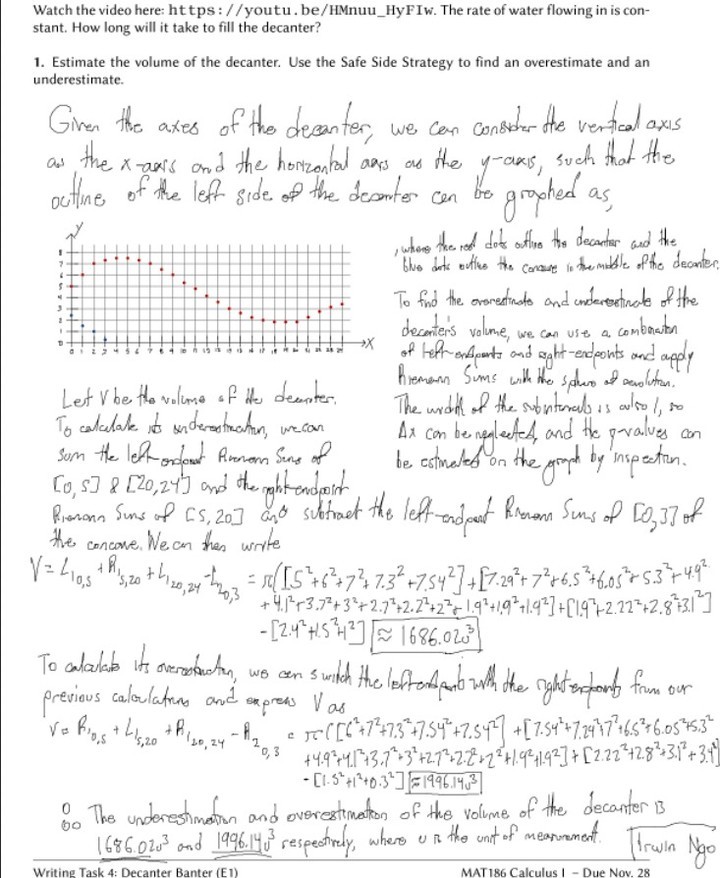 Watch the video here: https://youtu.be/HMnuu_HyFIw. The rate of water flowing in is con-
stant. How long will it take to fill the decanter?
1. Estimate the volume of the decanter. Use the Safe Side Strategy to find an overestimate and an
underestimate.
Given the axes of the decanter, we can consider the vertical axis
as the x-axis and the horizontal axis as the y-axis, such that the
outline of the left side of the decanter can be graphed as,
y
x
, where the red dots outline the decanter and the
blue dots outline the concave in the middle of the decanter.
To find the overestimate and underestimate of the
decanter's volume, we can use a combination
of left-endpoints and right-endpoints and apply
Riemann Sums with the sphere of revolution.
The width of the subintervals is also 1, so
Δx can be neglected, and the y-values can
be estimated on the graph by inspection.
Let V be the volume of the decanter.
To calculate its underestimation, we can
sum the left-endpoint Riemann Sums of
[0,5] & [20,24] and the right-endpoint
Riemann Sums of [5,20] and subtract the left-endpoint Riemann Sums of [0,3] of
the concave. We can then write
V = L10,5 + R15,20 + L120,24 - L20,3 = π([5²+6²+7²+7.3²+7.54²]+[7.29²+7²+6.5²+6.05²+5.3²+4.9²
+4.1²+3.7²+3²+2.7²+2.2²+2²+1.9²+1.9²+1.9²]+[1.9²+2.22²+2.8²+3.1²]
-[2.4²+1.5²+1²]) ≈ 1686.02u³
To calculate its overestimation, we can switch the left endpoints with the right endpoints from our
previous calculations and express V as
V = R10,5 + L15,20 + R120,24 - R20,3 = π([6²+7²+7.3²+7.54²+7.54²]+[7.54²+7.29²+7²+6.5²+6.05²+5.3²
+4.9²+4.1²+3.7²+3²+2.7²+2.2²+2²+1.9²+1.9²]+[2.22²+2.8²+3.1²+3.4²]
-[1.5²+1²+0.3²]) ≈ 1996.14u³
∴ The underestimation and overestimation of the volume of the decanter is
1686.02u³ and 1996.14u³ respectively, where u is the unit of measurement.
Irwin Ngo
Writing Task 4: Decanter Banter (E1) MAT186 Calculus I – Due Nov. 28